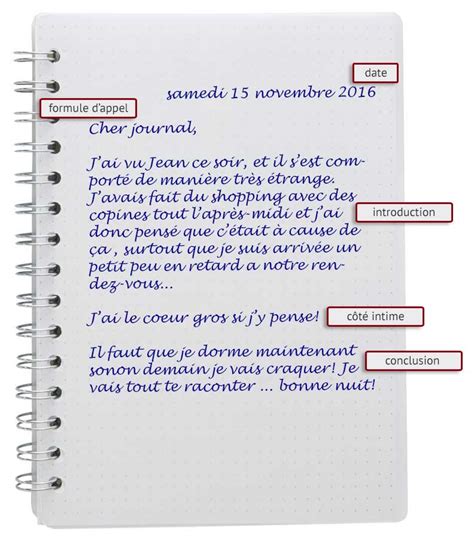 date
samedi 15 novembre 2016
formule d'appel
Cher journal,
J'ai vu Jean ce soir, et il s'est com-
porté de manière très étrange.
J'avais fait du shopping avec des
copines tout l'après-midi et j'ai
donc pensé que c'était à cause de
ça , surtout que je suis arrivée un
petit peu en retard a notre ren-
dez-vous...
introduction
J'ai le coeur gros si j'y pense!
côté intime
Il faut que je dorme maintenant
sonon demain je vais craquer! Je
vais tout te raconter ... bonne nuit!
conclusion